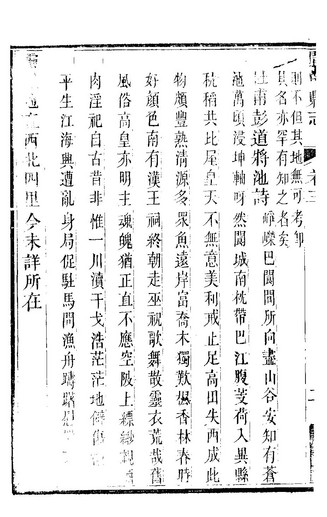 閬中縣志 卷三 二
則不但其地無可考即
其名亦罕有知之者矣
杜甫彭道將池詩 崢嶸巴閬間所向盡山谷安知有蒼
池萬頃浸坤軸呀然閬城南枕帶巴江腹芰荷入異縣
秔稻共比屋皇天不無意美利戒止足高田失西成此
物頗豐熟清源多眾魚遠岸富喬木獨歎楓香林春時
好顏色南有漢王祠終朝走巫祝歌舞散靈衣荒哉舊
風俗高皇亦明主魂魄猶正直不應空陂上縹緲親
肉淫祀自古昔非惟一川瀆干戈浩茫茫地僻傷
平生江海興遭亂身局促駐馬問漁舟躊躇慰
西北四里今未詳所在